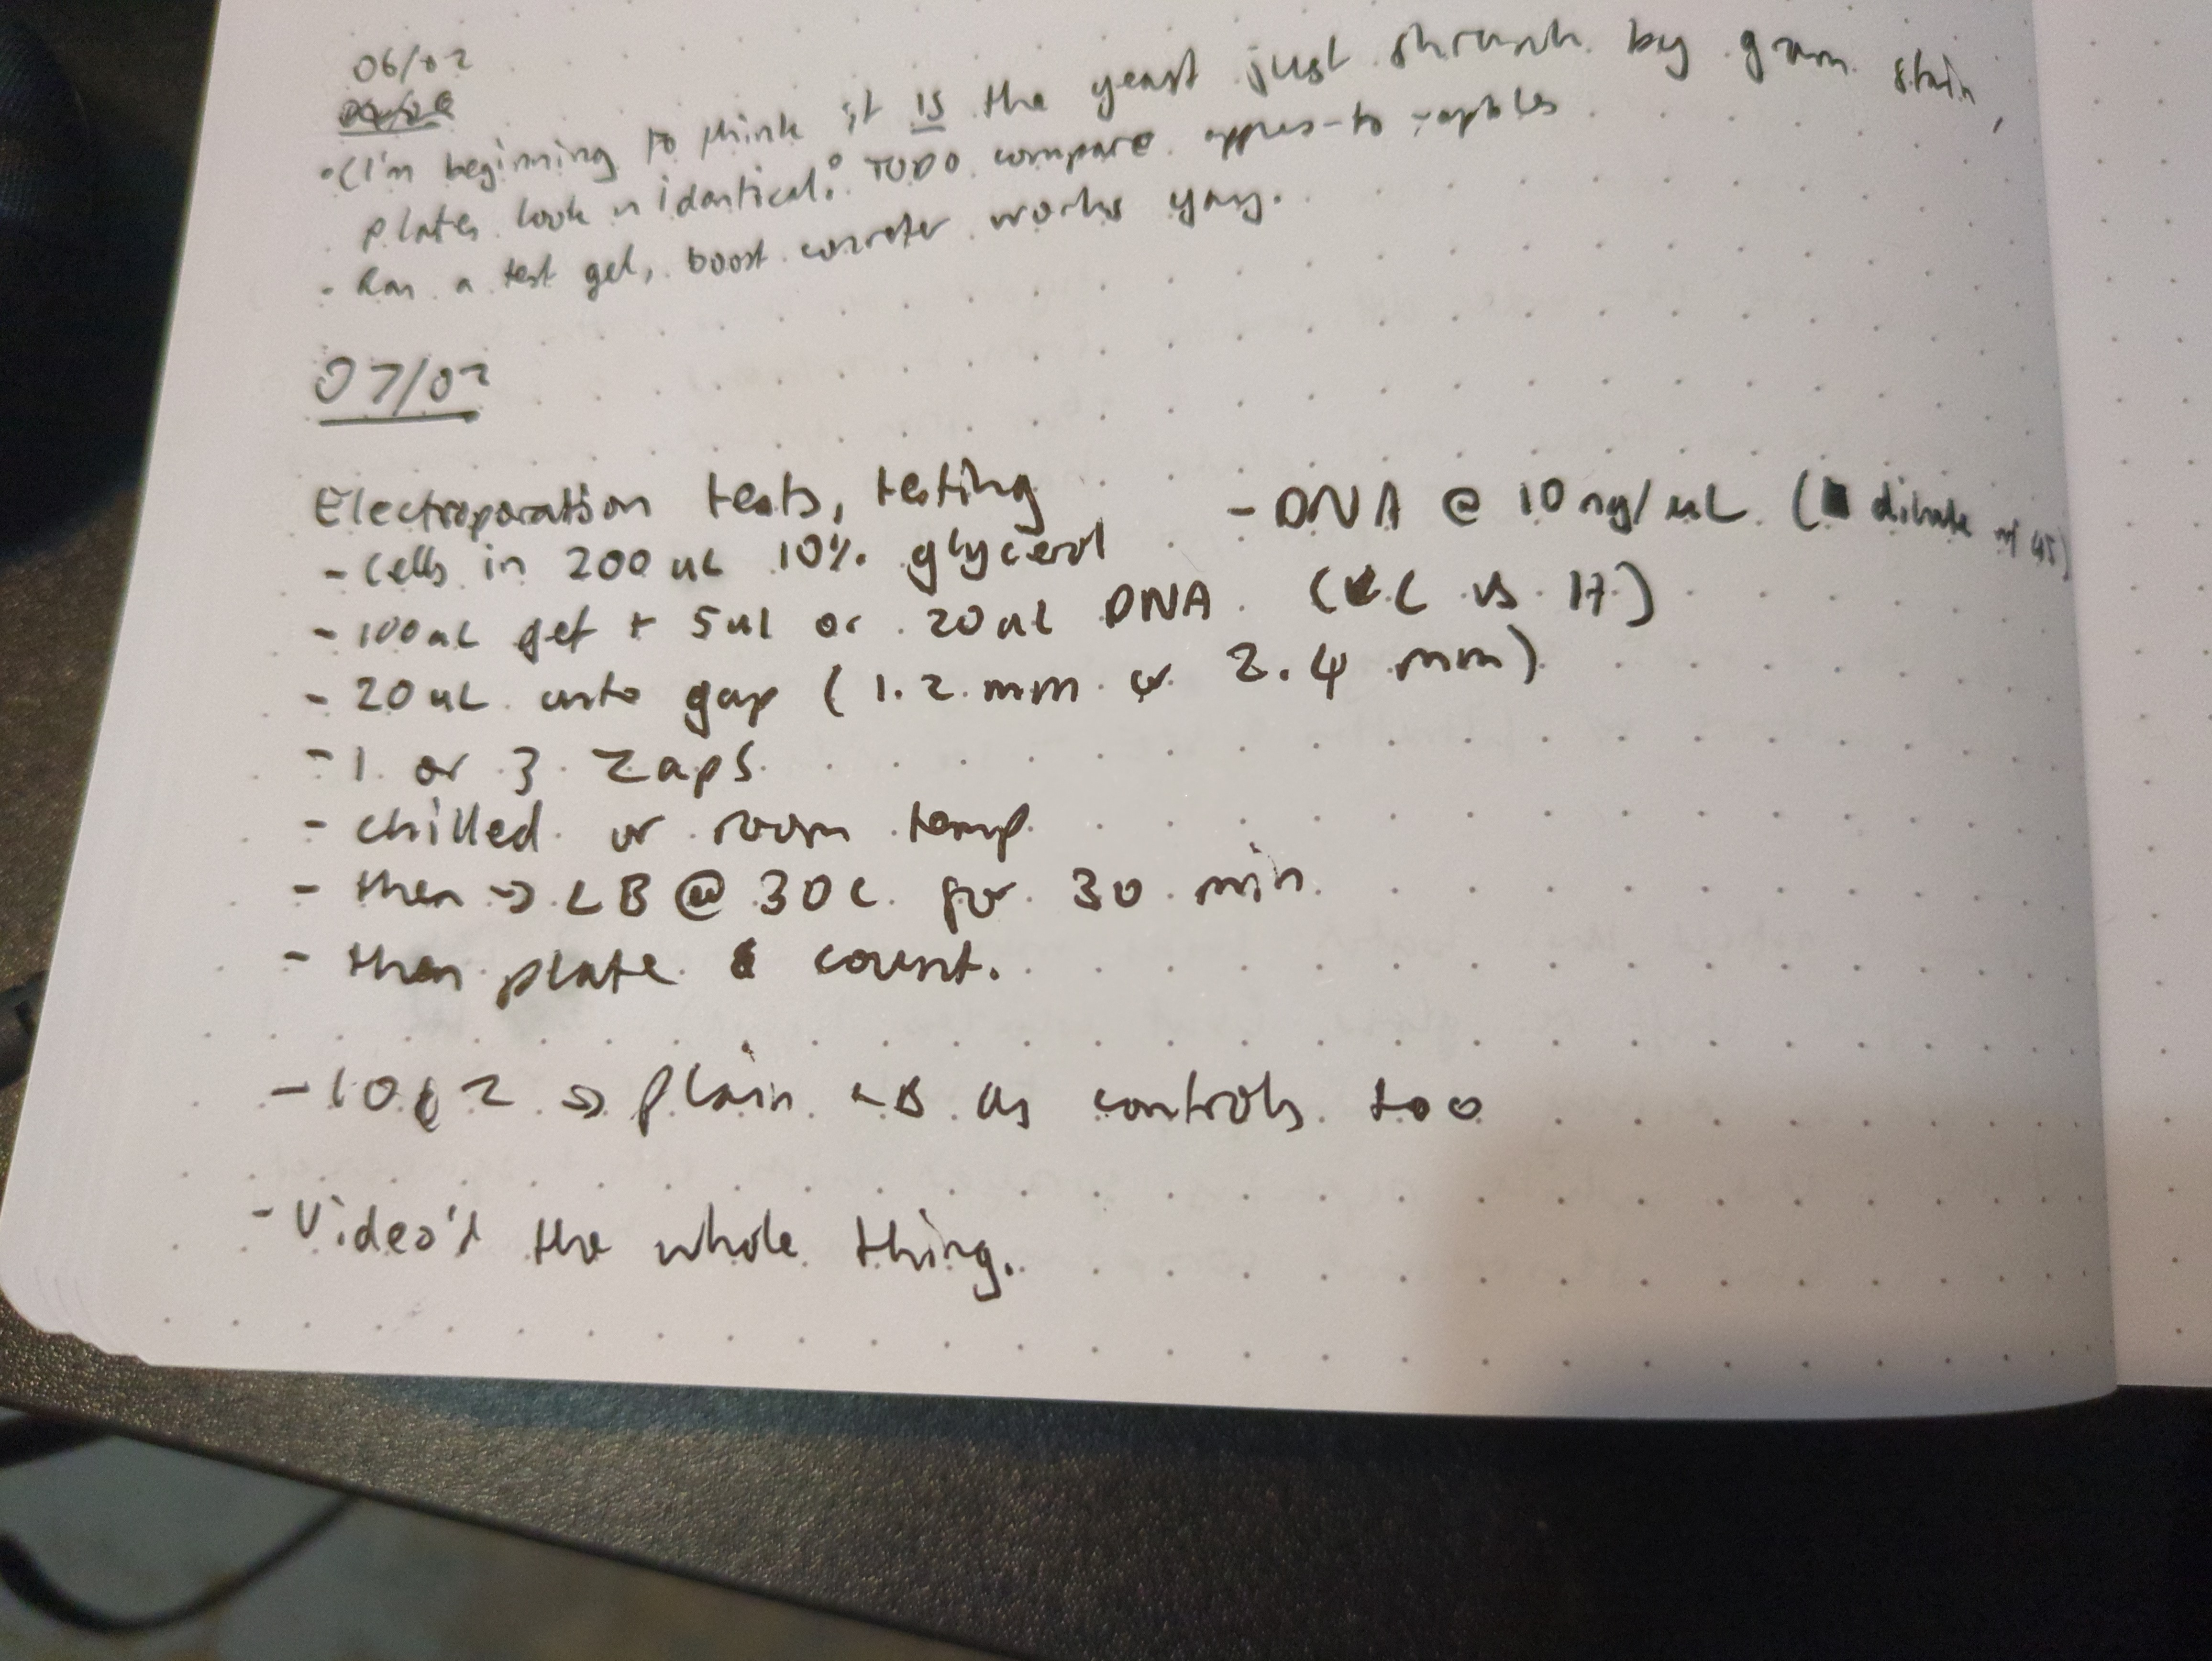 06/02
- (I'm beginning to think it is the yeast just shrunk by gram stain,
plates look identical. TODO compare apples-to-apples
- Ran a test gel, boost converter works yay.
07/02
Electroporation tests, testing
- Cells in 200 uL 10% glycerol
- DNA @ 10 ng/uL ( dilute
- 100 uL get + 5 ul or 20 uL DNA (L vs H)
- 20 uL into gap (1.2 mm or 2.4 mm)
- 1 or 3 zaps
- chilled or room temp
- then → LB @ 30C for 30 min
- then plate & count.
- → plain LB as controls too
- Video'd the whole thing.